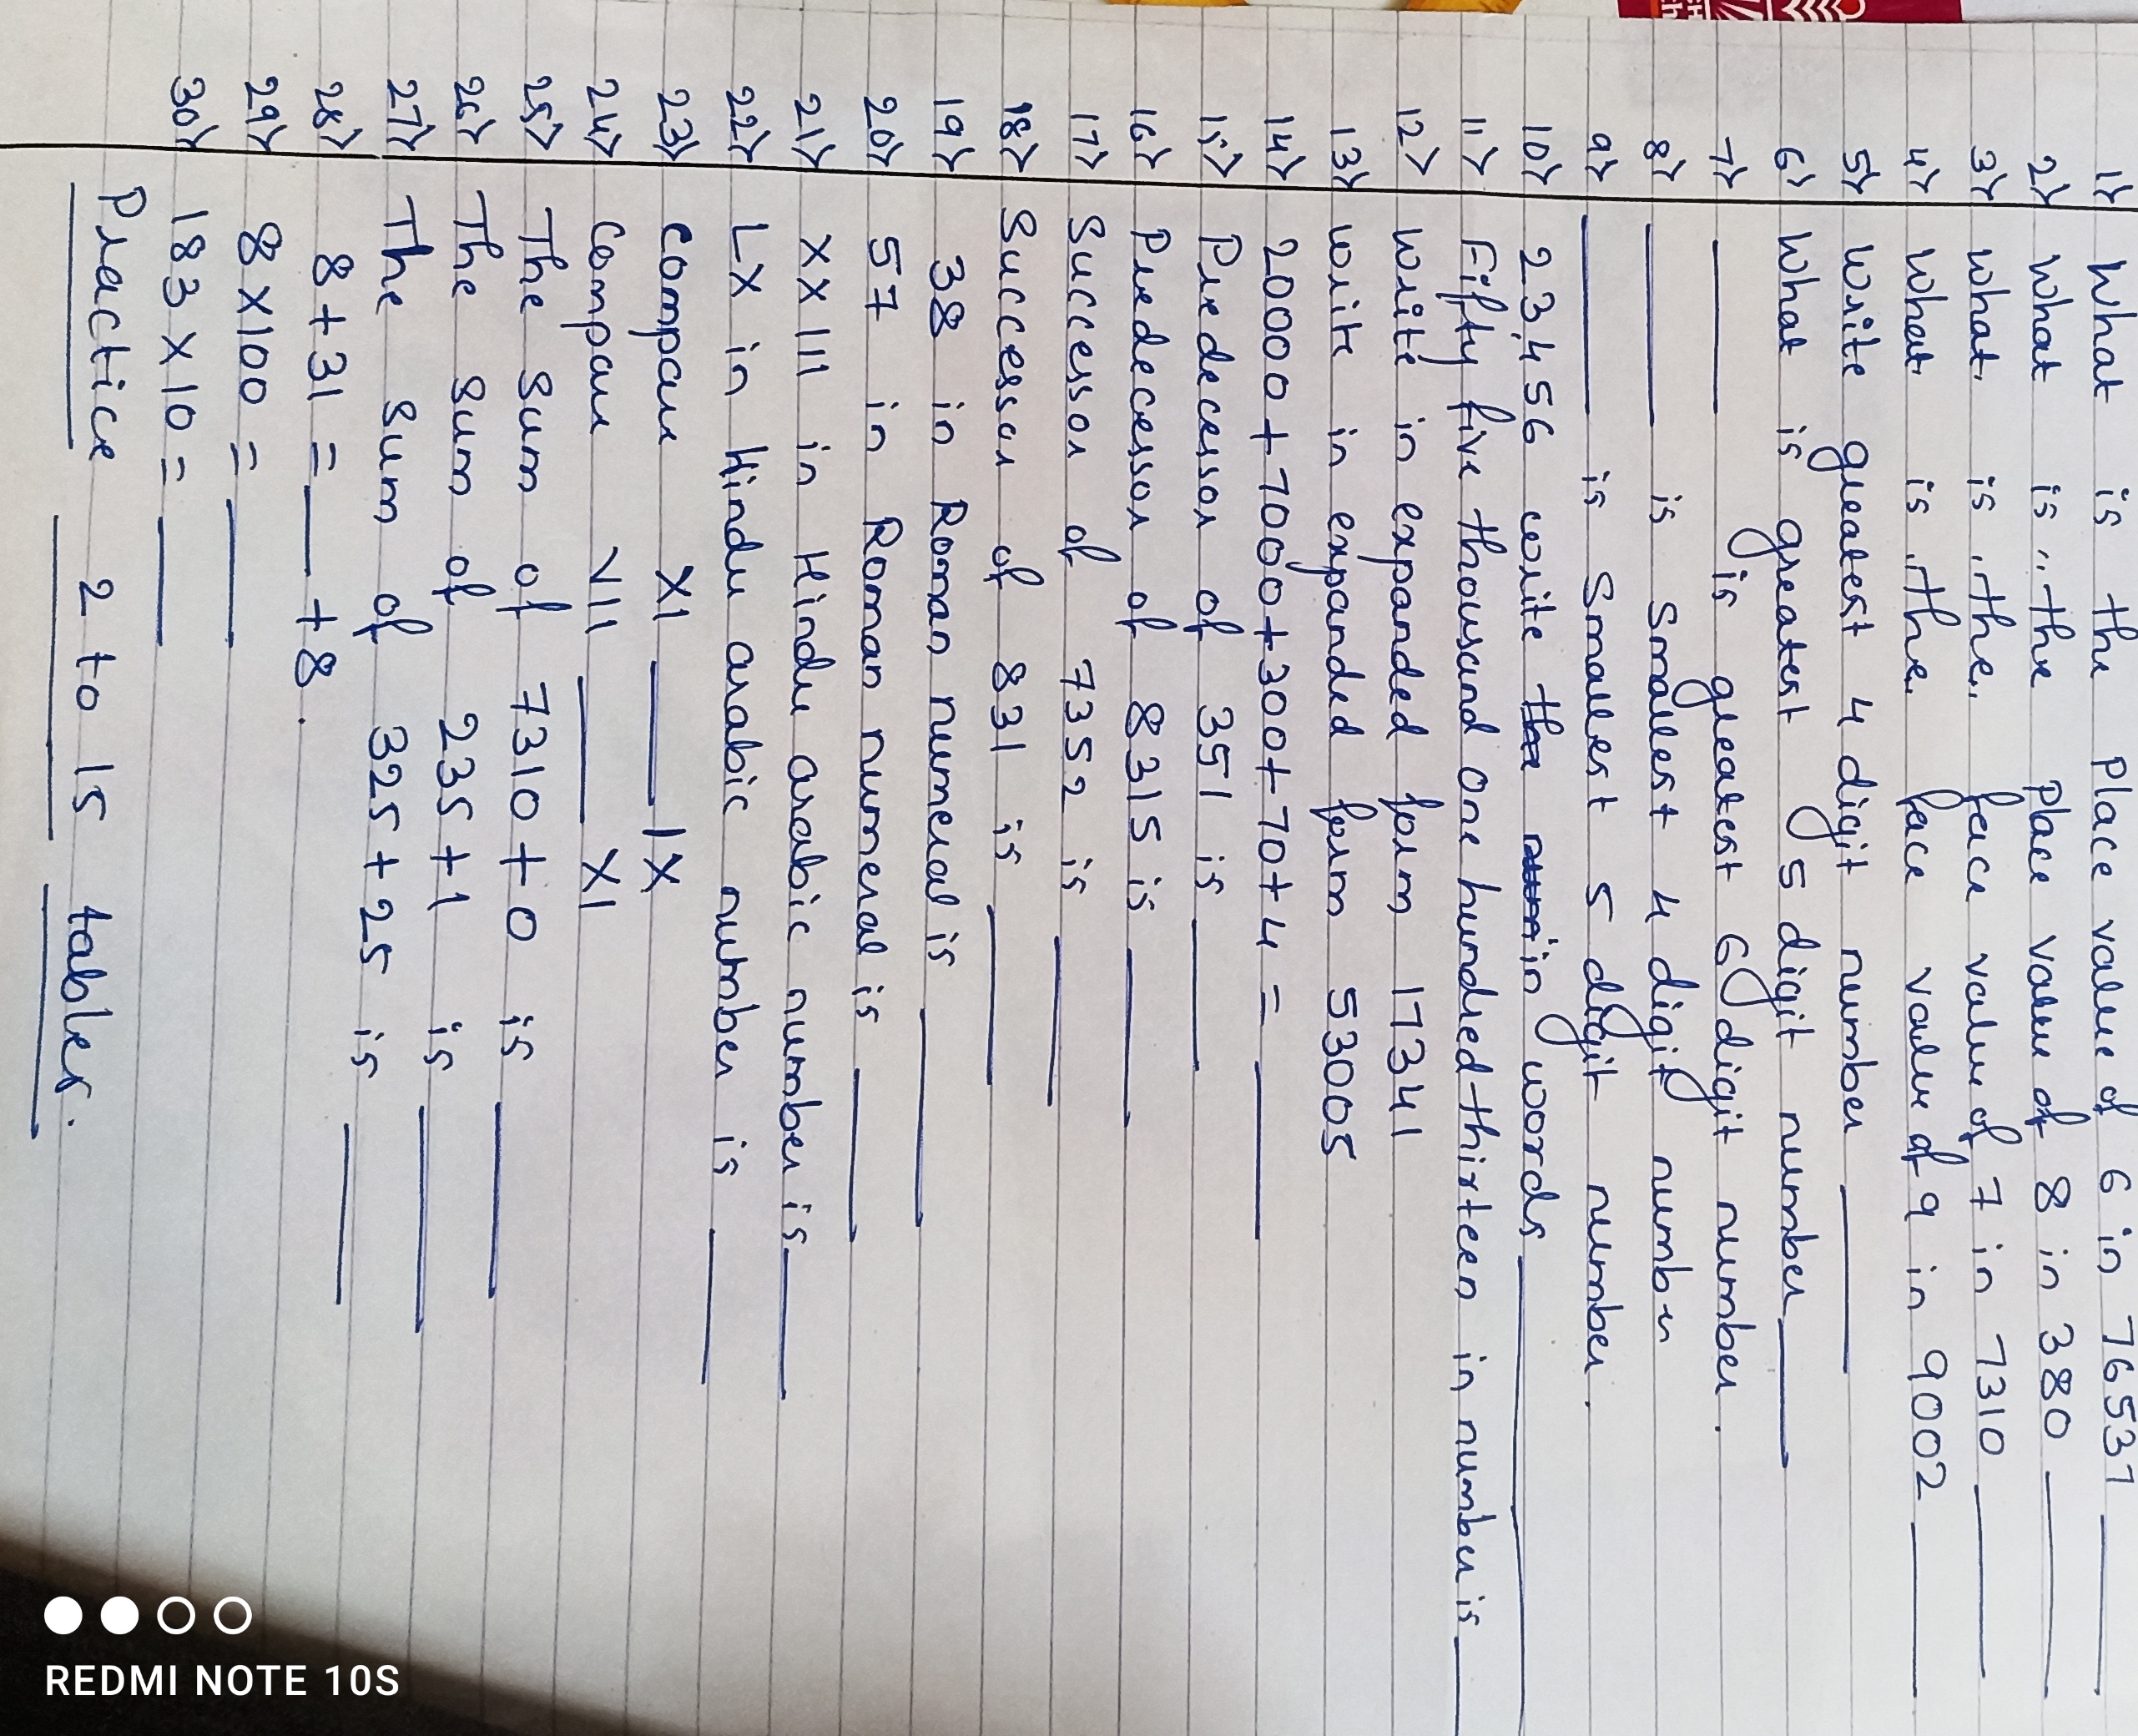 1) What is the Place value of 6 in 76531 ____
2) What is the Place value of 8 in 380 ____
3) what is the face value of 7 in 7310 ____
4) What is the face value of 9 in 9002 ____
5) Write greatest 4 digit number ____
6) What is greatest 5 digit number ____
7) ____ is greatest 6 digit number.
8) ____ is Smallest 4 digit number
9) ____ is Smallest 5 digit number.
10) 23,456 write in words ____
11) Fifty five thousand one hundred thirteen in number is ____
12) Write in expanded form 17341
13) write in expanded form 53005
14) 20000+7000+300+70+4 = ____
15) Predecessor of 351 is ____
16) Predecessor of 8315 is ____
17) Successor of 7352 is ____
18) Successor of 831 is ____
19) 38 in Roman numeral is ____
20) 57 in Roman numeral is ____
21) XXIII in Hindu arabic number is ____
22) LX in Hindu arabic number is ____
23) Compare XI ____ IX
24) Compare VII ____ XI
25) The Sum of 7310+0 is ____
26) The Sum of 235+1 is ____
27) The Sum of 325+25 is ____
28) 8+31 = ____ +8.
29) 8X100 = ____
30) 183X10 = ____
Practice 2 to 15 tables.
REDMI NOTE 10S